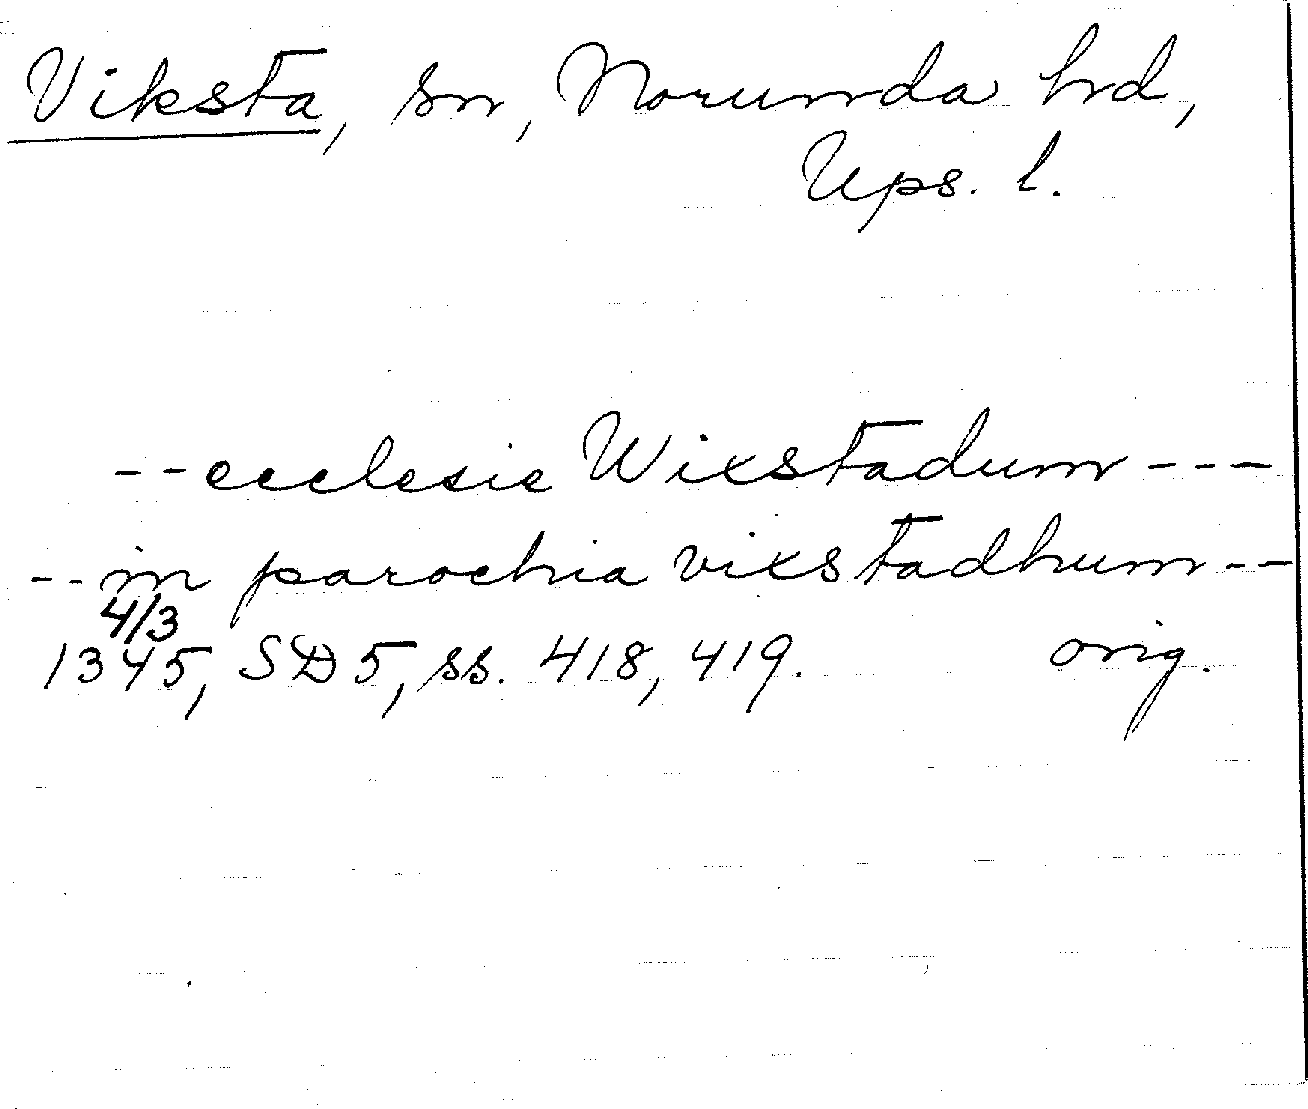 Viksta, sn, Norunda hrd,
Ups. l.
--ecclesie Wixstadum---
--in parochia vixstadhum--
4/3
1345, SD5, ss. 418, 419. orig.